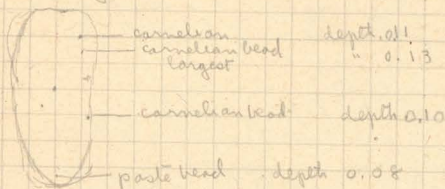 carnelian depth 0.11
carnelian bead " 0.13
largest
carnelian bead depth 0.10
paste bead depth 0.08